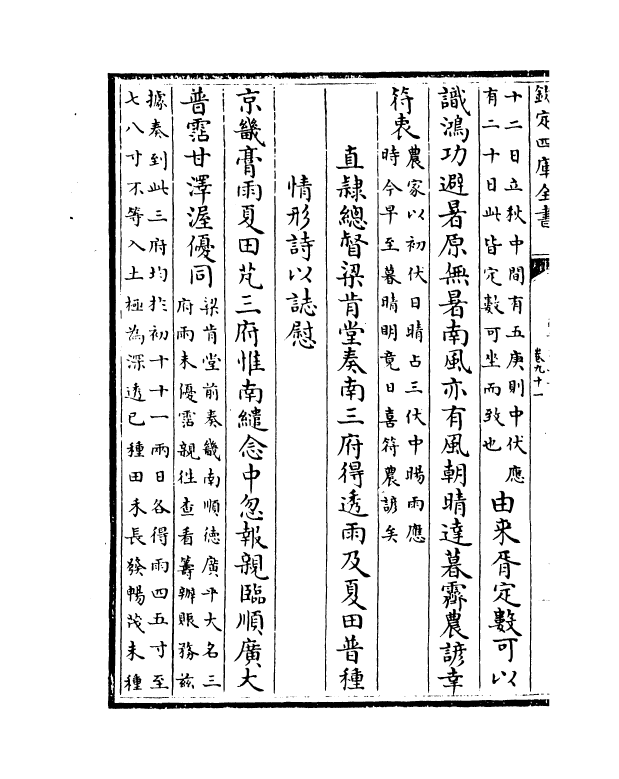 欽定四庫全書
卷九十一
十二日立秋中間有五庚則中伏應
有二十日此皆定數可坐而致也
由来胥定數可以
識鴻功避暑原無暑南風亦有風朝晴達暮霽農諺幸
符衷
農家以初伏日晴占三伏中暘雨應
時今早至暮晴明竟日喜符農諺矣
直隸總督梁肯堂奏南三府得透雨及夏田普種
情形詩以誌慰
京畿膏雨夏田芃三府惟南繾念中忽報親臨順廣大
普霑甘澤渥優同
梁肯堂前奏畿南順徳廣平大名三
府雨未優霑親徃查看籌辦賑務兹
據奏到此三府均於初十十一兩日各得雨四五寸至
七八寸不等入土極為深透已種田禾長發暢茂未種